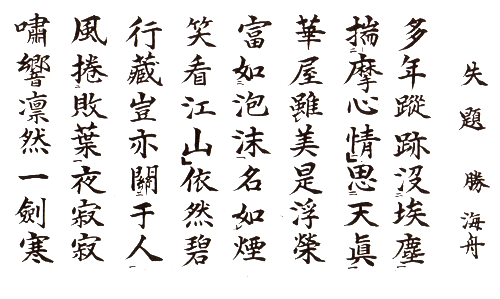 失題 勝海舟
多年蹤跡没埃塵
揣摩心情思天眞
華屋雖美是浮榮
富如泡沫名如煙
笑看江山依然碧
行藏豈亦關于人
風捲敗葉夜寂寂
嘯響凛然一劍寒